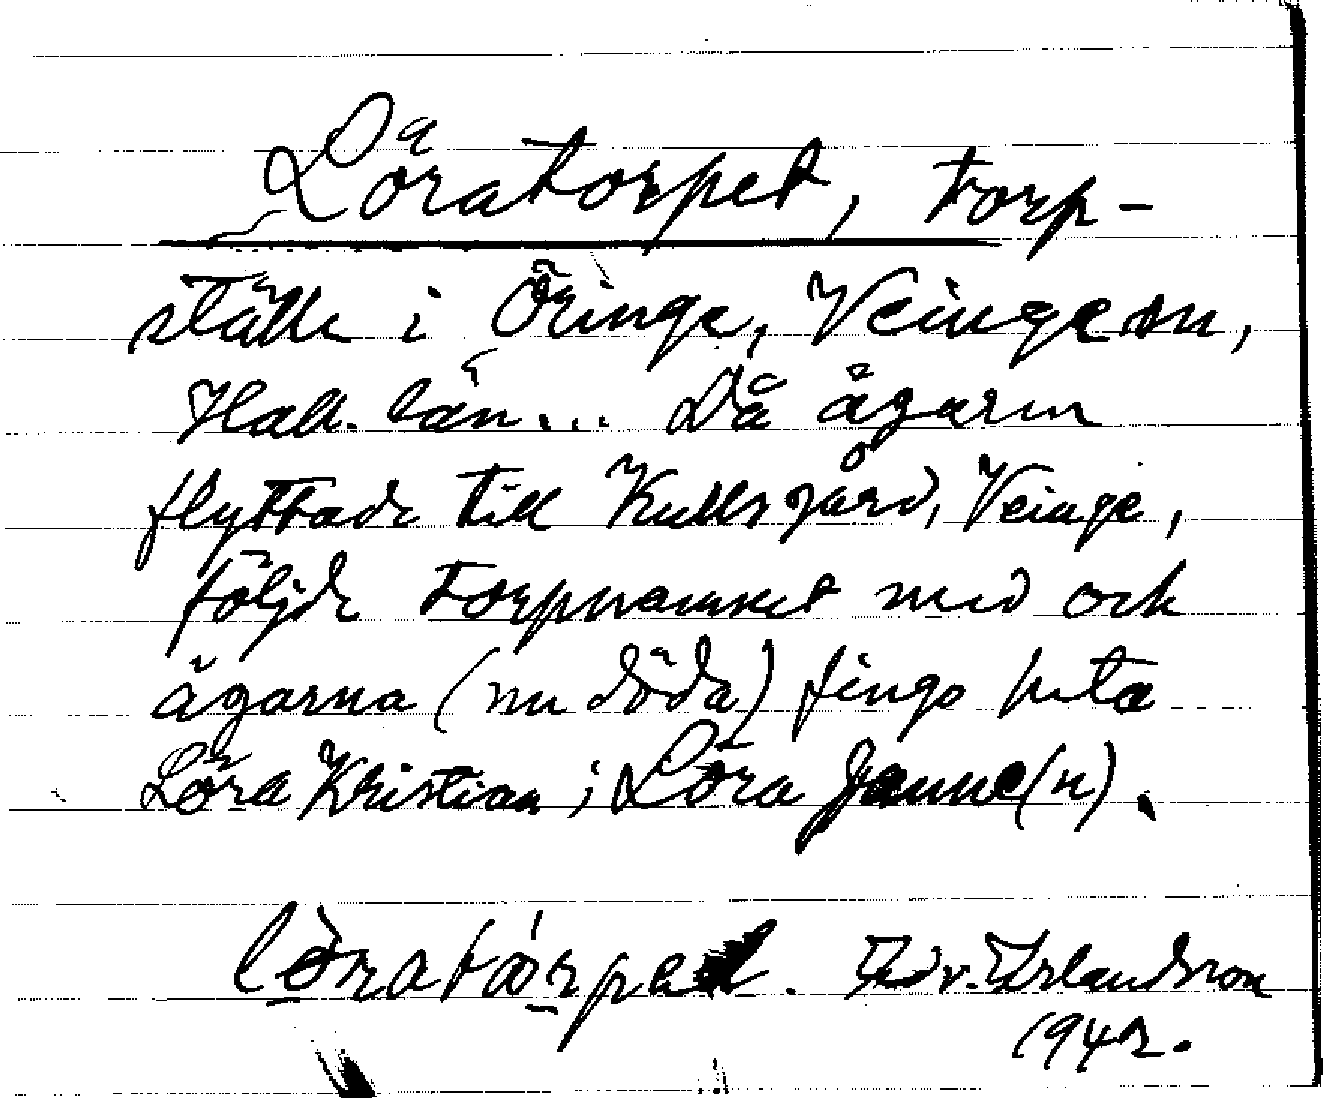 Löratorpet, torp-
ställe i Öringe, Veinge sn,
Hall. län... Då ägaren
flyttade till Kullsgård, Veinge,
följde torpnamnet med och
ägarna (nu döda) fingo heta
Löra Kristian; Löra Janne(n).
löratórpet. Edv. Erlandsson
1942.